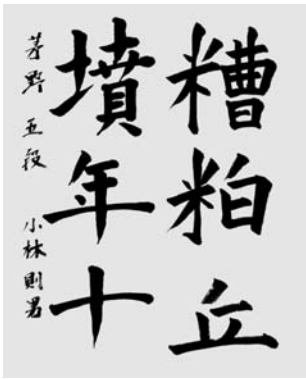 糟粕丘
墳年十
茅野 五段 小林則男